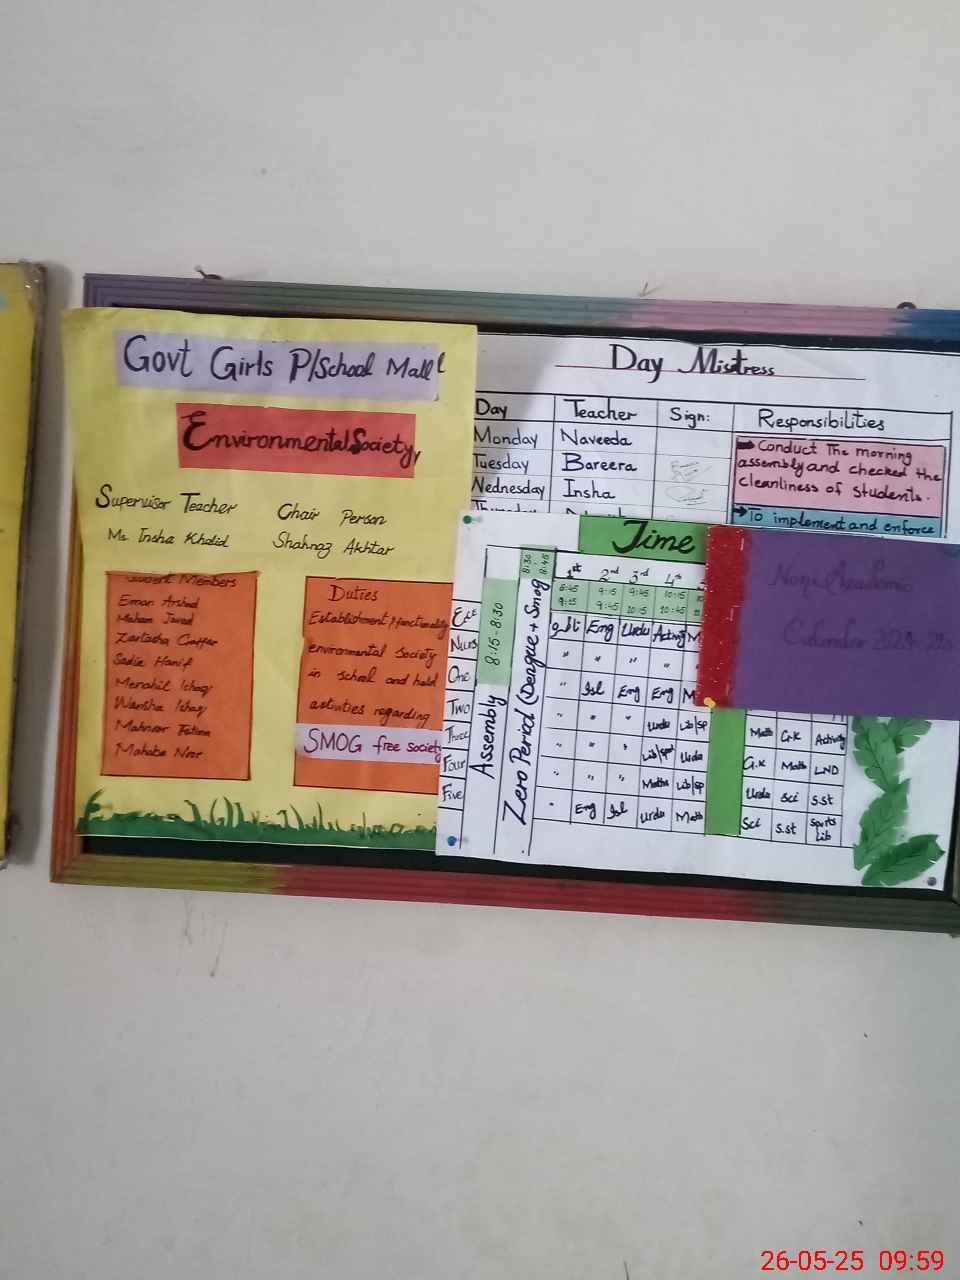 Govt Girls P/School Mall
Environmental Society
Supervisor Teacher
Chair Person
Ms. Insha Khalid
Shahnaz Akhtar
Student Members
Eman Arshad
Maham Javed
Zartasha Gaffar
Sadia Hanif
Menahil Ishaq
Warisha Ishaq
Mahnoor Fatima
Mahaba Noor
Duties
Establishment/functionality
environmental society
in school and hold
activities regarding
SMOG free society
Day Mistress
Day Teacher Sign: Responsibilities
Monday Naveeda
Tuesday Bareera
Wednesday Insha
➡ Conduct The morning
assembly and checked the
cleanliness of students.
➡ To implement and enforce
Time
Assembly
8:15-8:30
Zero Period (Dengue + Smog)
8:30
8:45
1st 2nd 3rd 4th
8:45 9:15 9:45 10:15
9:15 9:45 10:15 10:45
ECE Eng Urdu Activity M
Nurs " " " "
One " Isl Eng Eng M
Two " " " Urdu Lib/sp
Three " " " Lib/spt Urdu
Four " " " Maths Lib/sp
Five " Eng Isl Urdu Math
Math G.K Activity
G.K Math LND
Urdu Sci S.st
Sci S.st Sports
Lib
Academic
Calendar
26-05-25 09:59